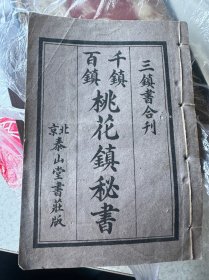 三鎮書合刊
千鎮
百鎮
桃花鎮秘書
北京
泰山堂書莊版